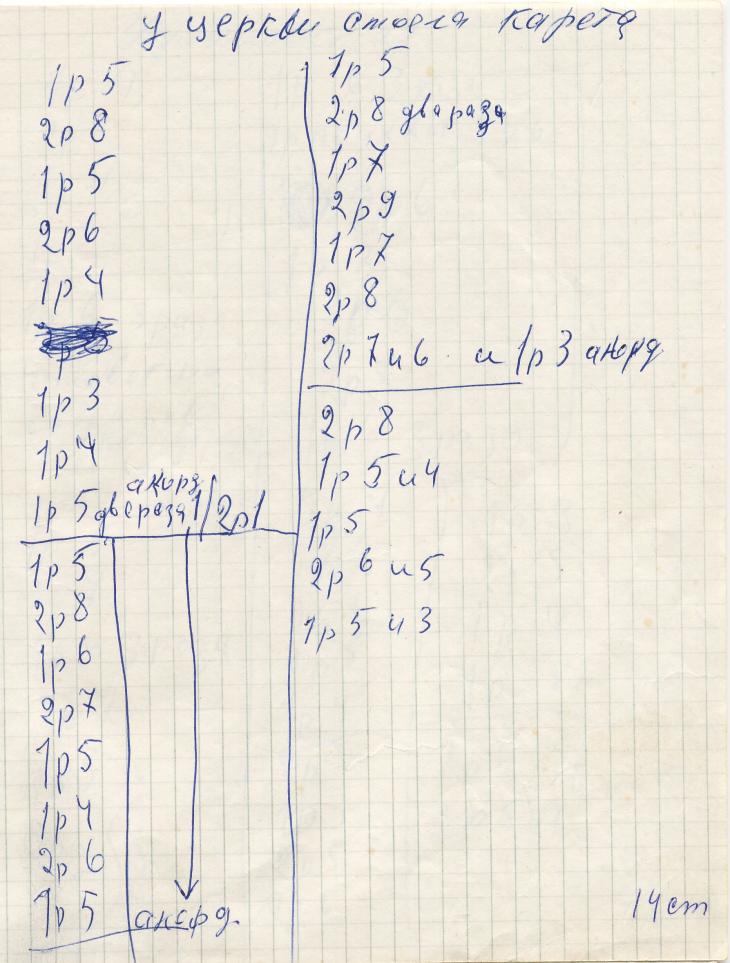 у церкви стоела карета
1р 5
2р 8
1р 5
2р6
1р 4
1р 3
1р 4
1р 5 два раза акорд 1/2р1
1р 5
2р8
1р 6
2р7
1р 5
1р 4
2р 6
1р 5 акорд.
1р 5
2р 8 два раза
1р7
2р9
1р7
2р 8
2р 7 и 6 и 1р 3 акорд
2р 8
1р 5 и 4
1р 5
2р 6 и 5
1р 5 и 3
14 ст